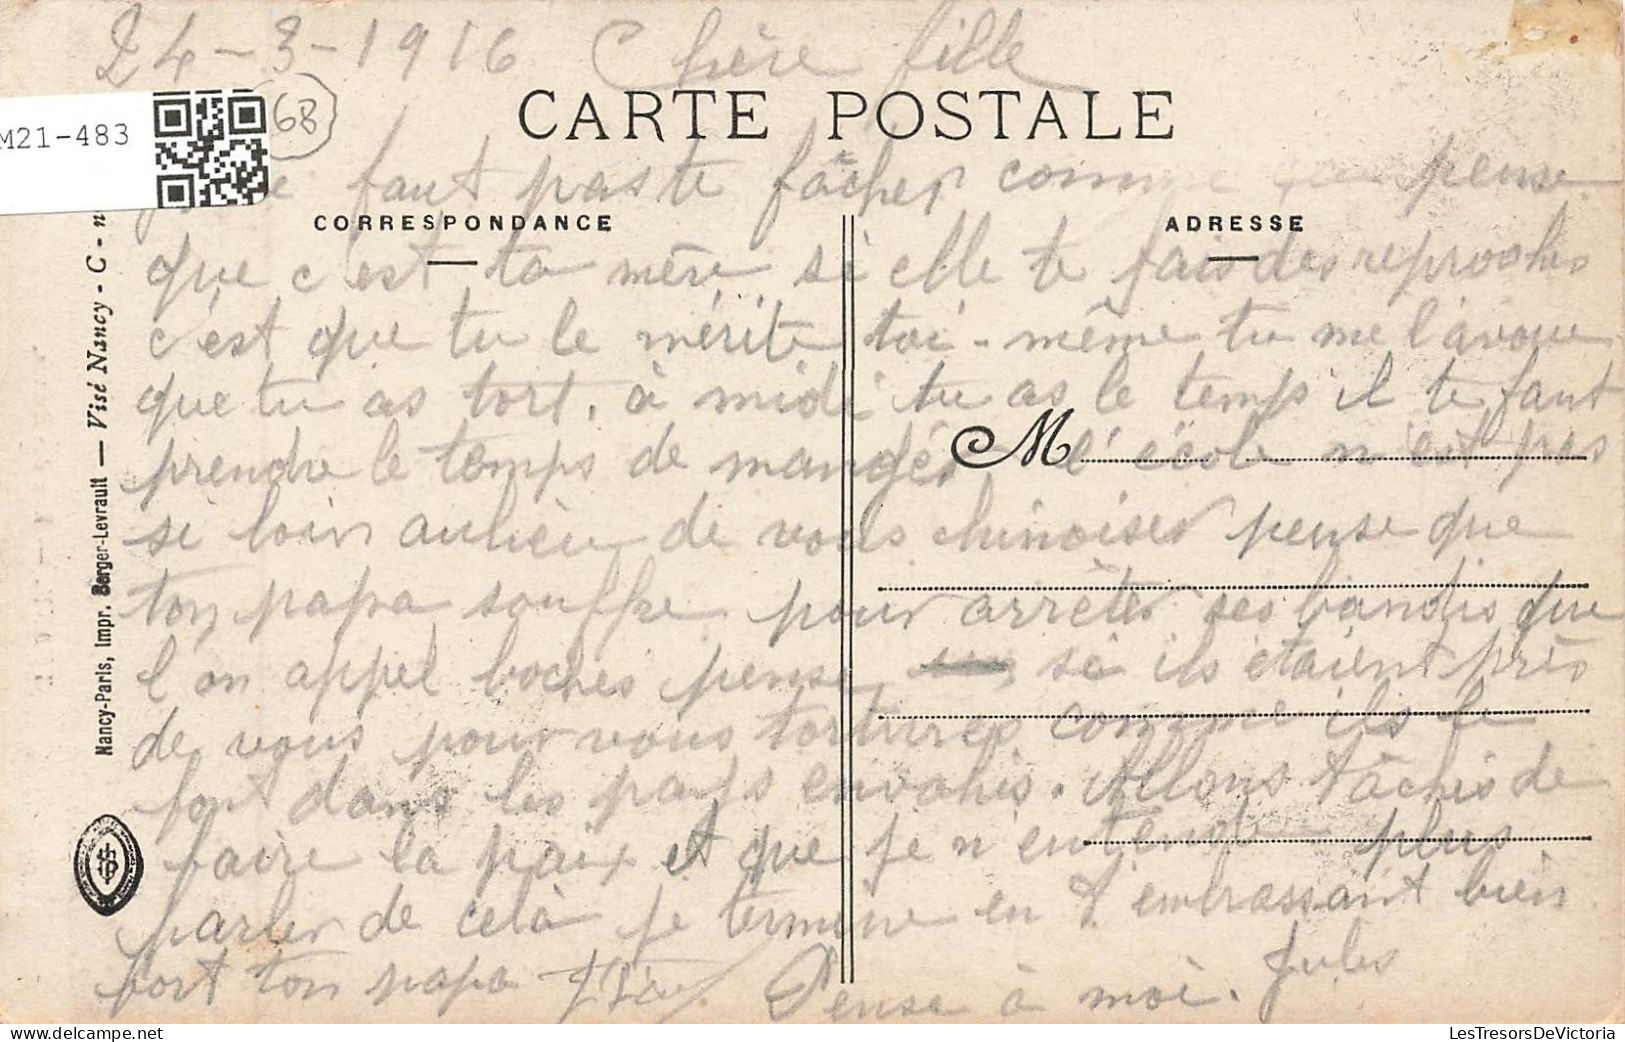 24-3-1916 Chère fille
CARTE POSTALE
M21-483
68
faut pas te fâcher comme pense
CORRESPONDANCE
ADRESSE
que c'est ta mère si elle te fais des reproches
c'est que tu le mérite toi-même tu me l'avoue
que tu as tort, à midi tu as le temps il te faut
prendre le temps de manger l'école n'est pas
M
si loin aulieu de vous chinoiser pense que
ton papa souffre pour arrêter ses bandis que
l'on appel boches pense si ils étaient près
de vous pour vous torturer comme ils le
font dans les pays envahis. Allons tâches de
faire la paix et que je n'entende plus
parler de celà je termine en t'embrassant bien
fort ton papa Pense à moi. Jules
Nancy-Paris, Impr. Berger-Levrault — Visé Nancy - C - n
LesTresorsDeVictoria.com